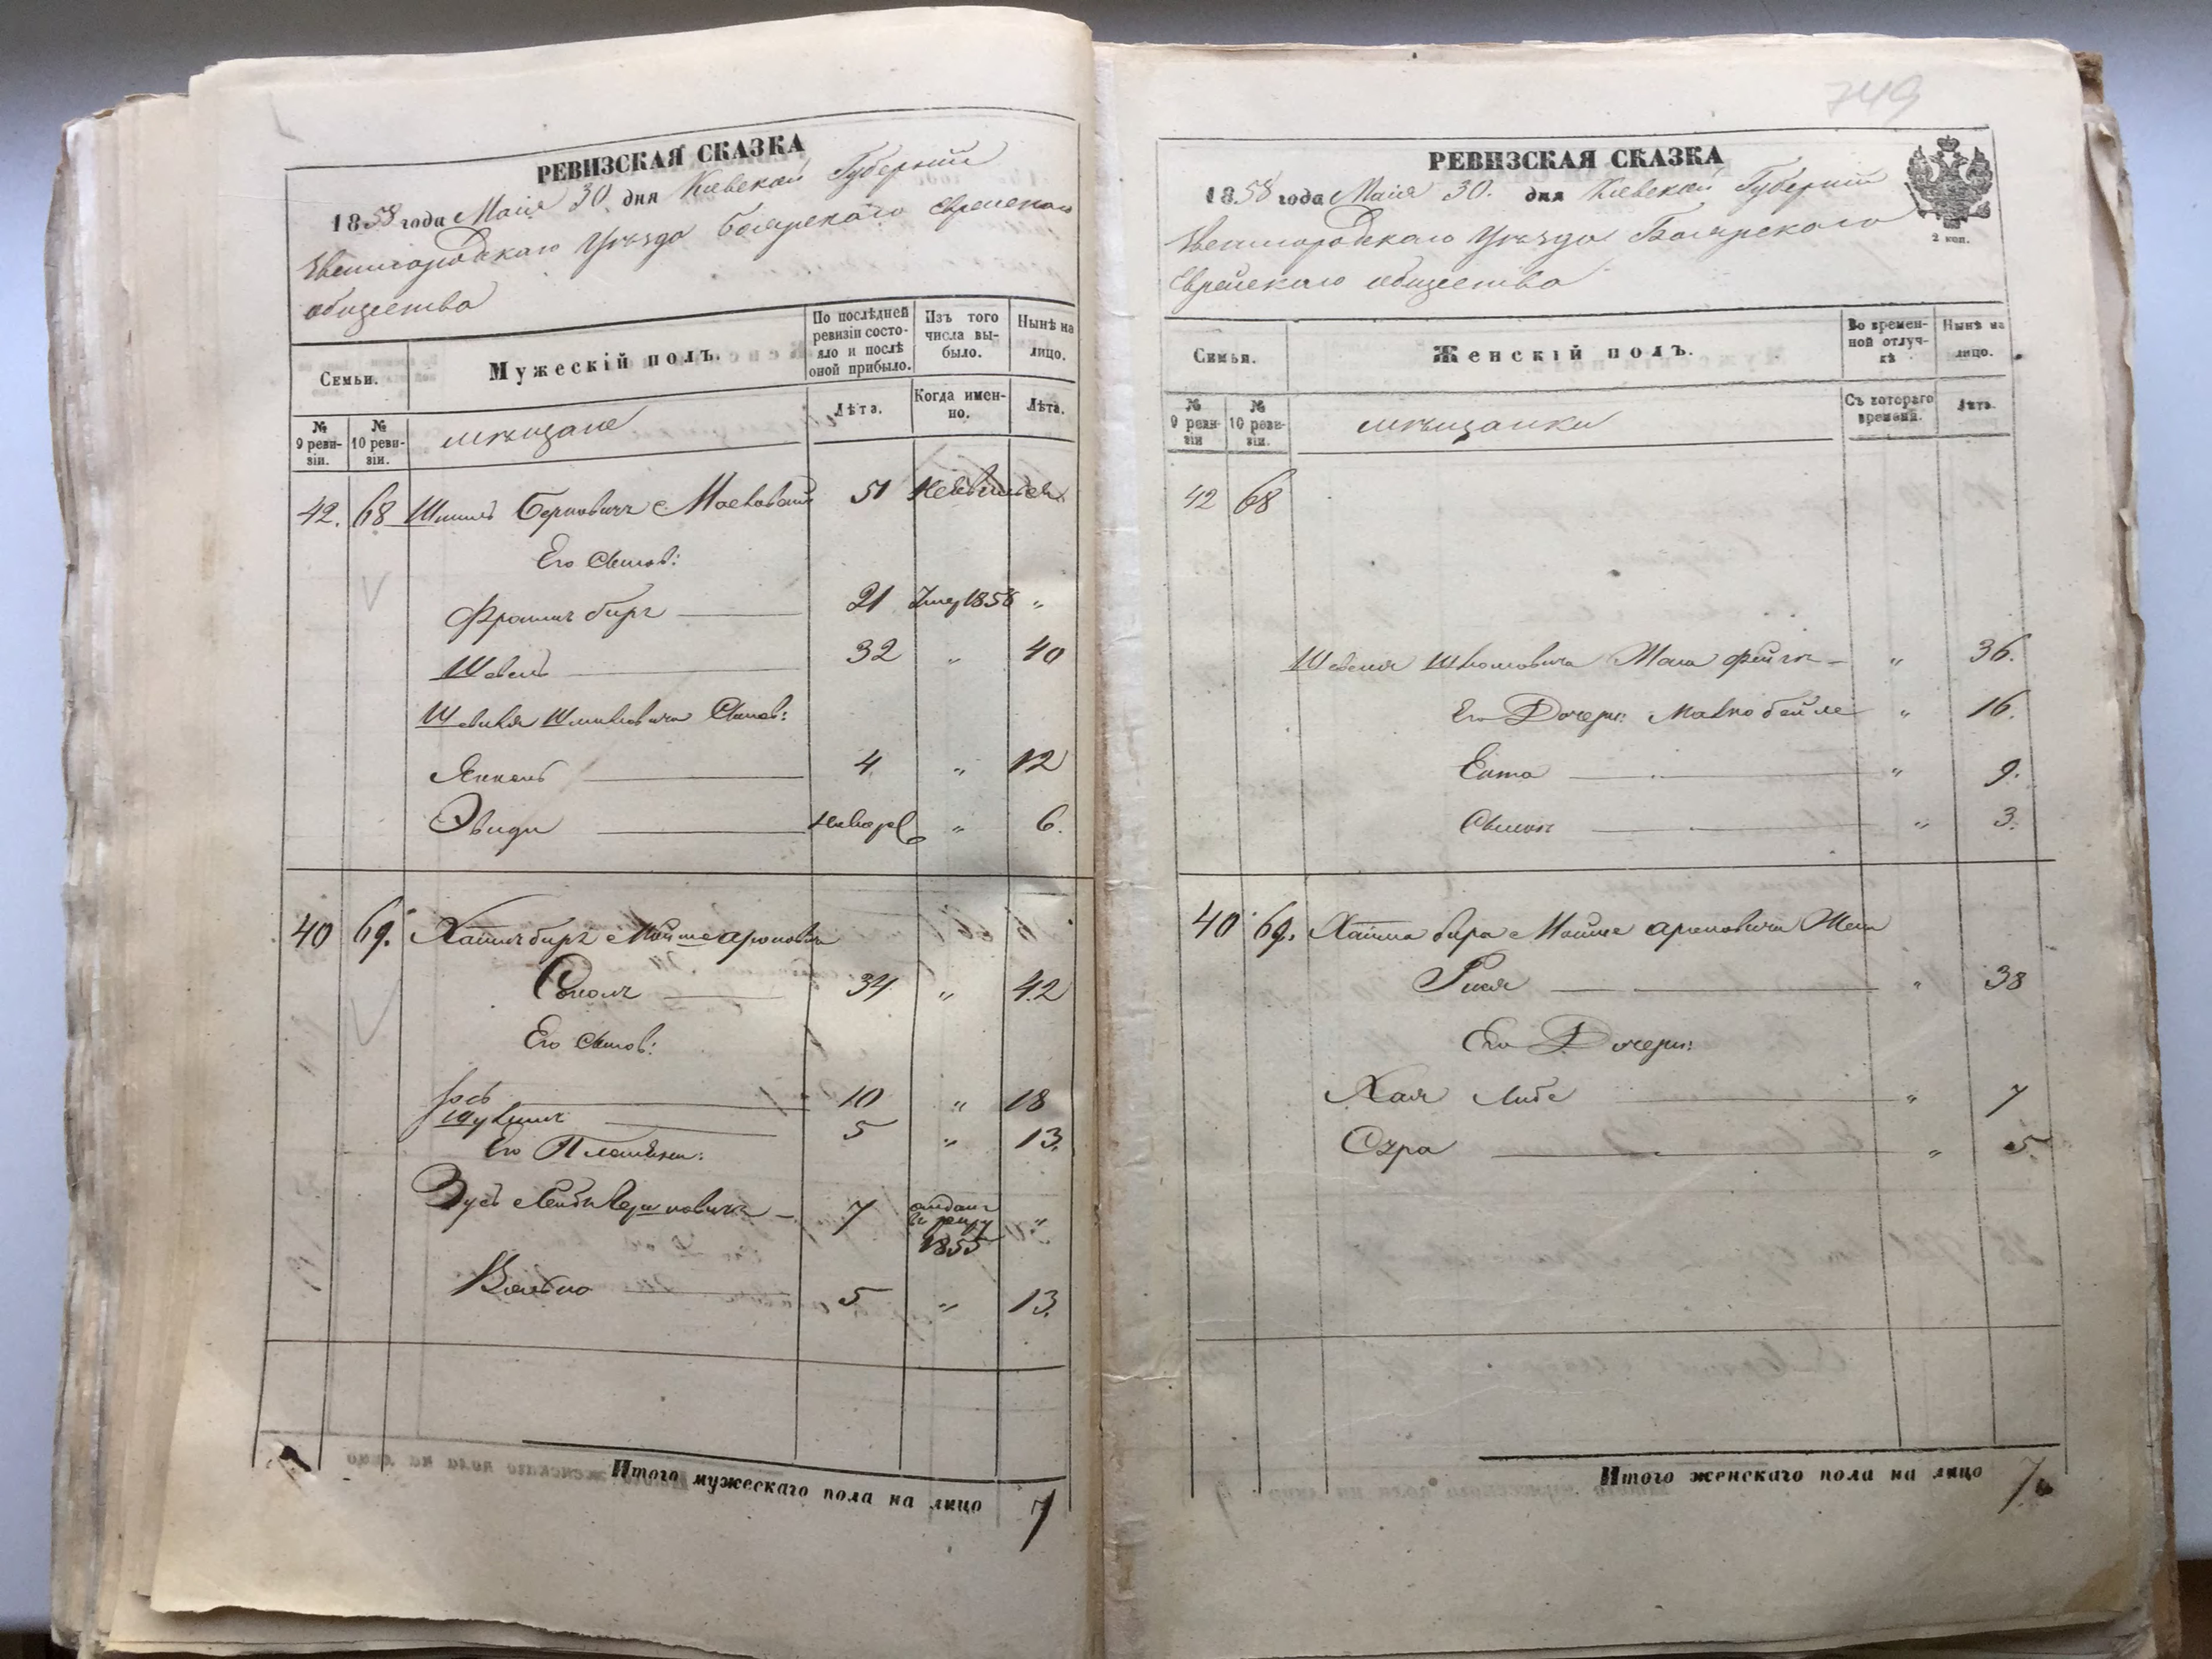 РЕВИЗСКАЯ СКАЗКА
1858 года Маія 30 дня Кіевской Губерніи
Звенигородскаго Уѣзда Боярскаго Еврейскаго
общества
Семьи.
Мужескій полъ.
По послѣдней ревизіи состояло и послѣ оной прибыло.
Изъ того числа выбыло.
Нынѣ на лицо.
№ 9 ревизіи.
№ 10 ревизіи.
мѣщане
Лѣта.
Когда именно.
Лѣта.
42. 68 Берковичъ 51
Его Сынов:
21 Умер 1856 "
Шевель 32 " 40
Шевеля Сынов:
Янкель 4 " 12
" 6.
40 69. Хаимъ биръ Мошеароновичъ
34 " 42
Его Сынов:
Іось 10 " 18
5 " 13.
Его Племянни:
7 отданъ в рекру 1855 "
Волько 5 " 13.
Итого мужескаго пола на лицо 7
749
РЕВИЗСКАЯ СКАЗКА
1858 года Маія 30. дня Кіевской Губерніи
Звенигородскаго Уѣзда Боярскаго
Еврейскаго общества
2 коп.
Семьи.
Женскій полъ.
Во временной отлучкѣ
Нынѣ на лицо.
№ 9 ревизіи
№ 10 ревизіи.
мѣщанки
Съ котораго времени.
Лѣта.
42 68
Шевеля Шмылевича Жена Фейга " 36.
Его Дочери: Малко бейле " 16.
Ента " 9.
" 3.
40 69. Хаима бера Мошие ароновича Жена
" 38
Его Дочери:
Хая Либе " 7
" 5.
Итого женскаго пола на лицо 7